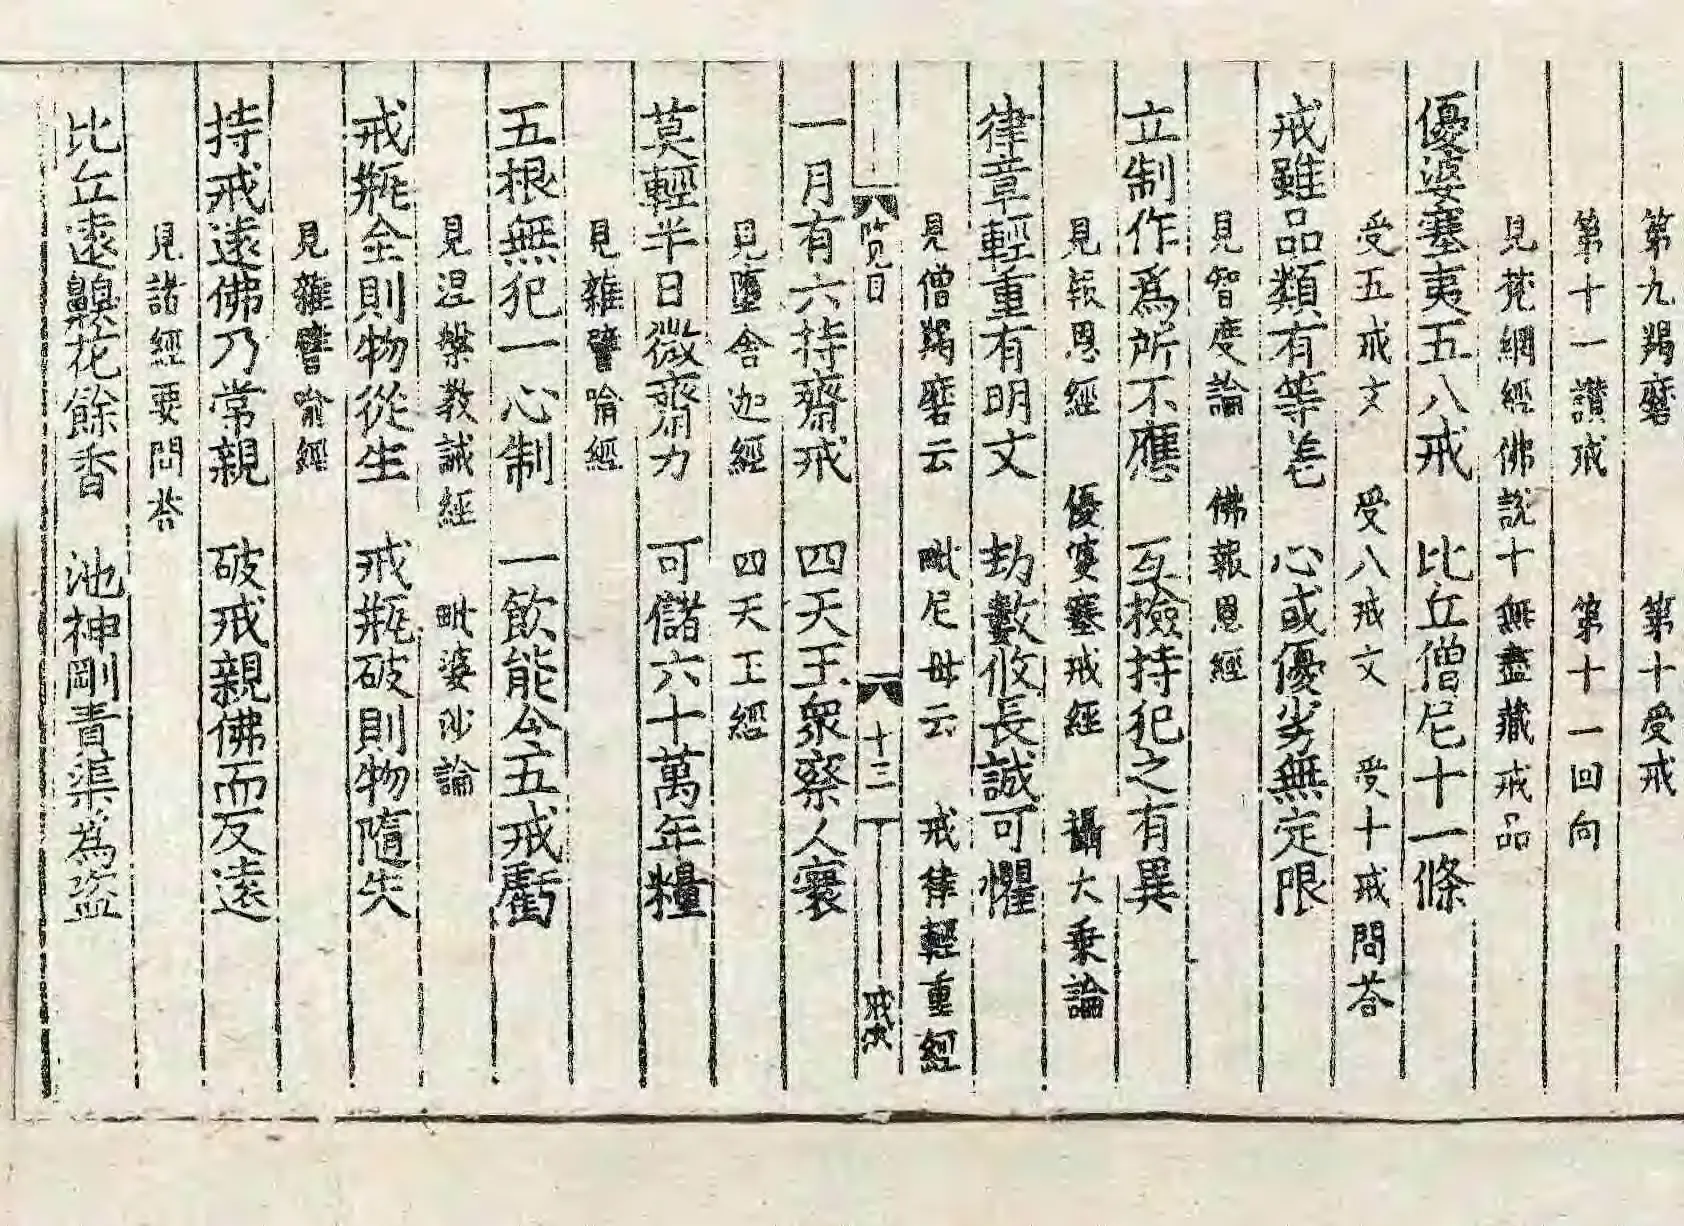 第九羯磨　第十受戒
第十一讃戒　第十一回向
見梵網經佛說十無盡藏戒品
優婆塞夷五八戒　比丘僧尼十一條
受五戒文　受八戒文　受十戒問荅
戒雖品類有等差　心或優劣無定限
見智度論　佛報恩經
立制作爲所不應　互檢持犯之有異
見報恩經　優婆塞戒經　攝大乗論
律章輕重有明文　劫數攸長誠可懼
見僧羯磨云　毗尼母云　戒律輕重經
覽目　十三
一月有六持齋戒　四天王衆察人寰
見墮舍迦經　四天王經
莫輕半日微齋力　可儲六十萬年糧
見雜譬喻經
五根無犯一心制　一飲能令五戒虧
見涅槃教誡經　毗婆沙論
戒瓶全則物從生　戒瓶破則物隨失
見雜譬喻經
持戒遠佛乃常親　破戒親佛而反遠
見諸經要問荅
比丘遠齅花餘香　池神剛責渠為盜